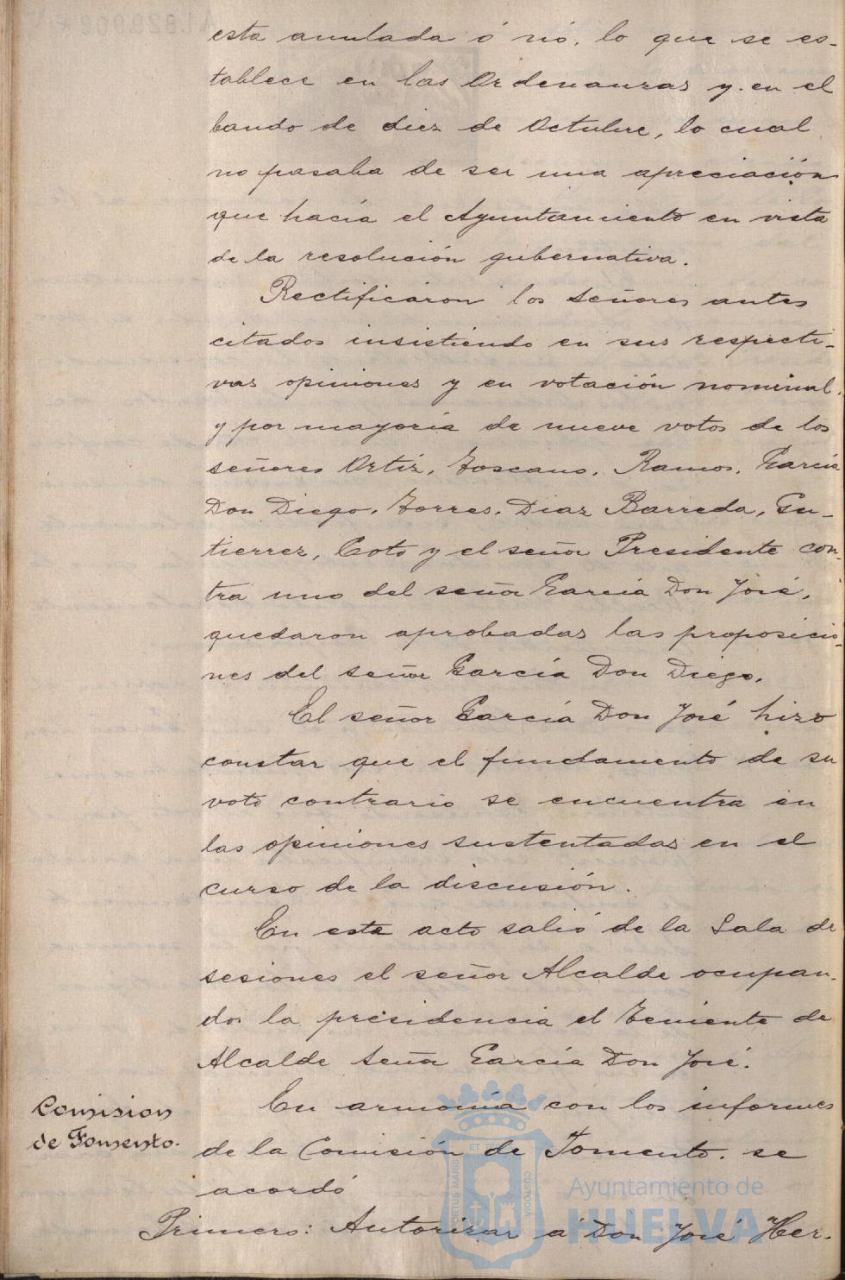 esta anulada ó nó, lo que se es-
tablece en las Ordenanzas y en el
bando de diez de Octubre, lo cual
no pasaba de ser una apreciación
que hacía el Ayuntamiento en vista
de la resolución gubernativa.
Rectificaron los señores antes
citados insistiendo en sus respecti-
vas opiniones y en votación nominal,
y por mayoría de nueve votos de los
señores Ortíz, Toscano, Ramos, García
Don Diego, Torres, Diaz Barreda, Gu-
tierrez, Coto y el señor Presidente con-
tra uno del señor García Don José,
quedaron aprobadas las proposicio-
nes del señor García Don Diego.
El señor García Don José hizo
constar que el fundamento de su
voto contrario se encuentra en
las opiniones sustentadas en el
curso de la discusión.
En este acto salió de la Sala de
sesiones el señor Alcalde ocupan-
do la presidencia el Teniente de
Alcalde señor García Don José.
Comision
de Fomento.
En armonía con los informes
de la Comisión de Fomento. se
acordó
Primero: Autorizar á Don José Her-
Ayuntamiento de
HUELVA